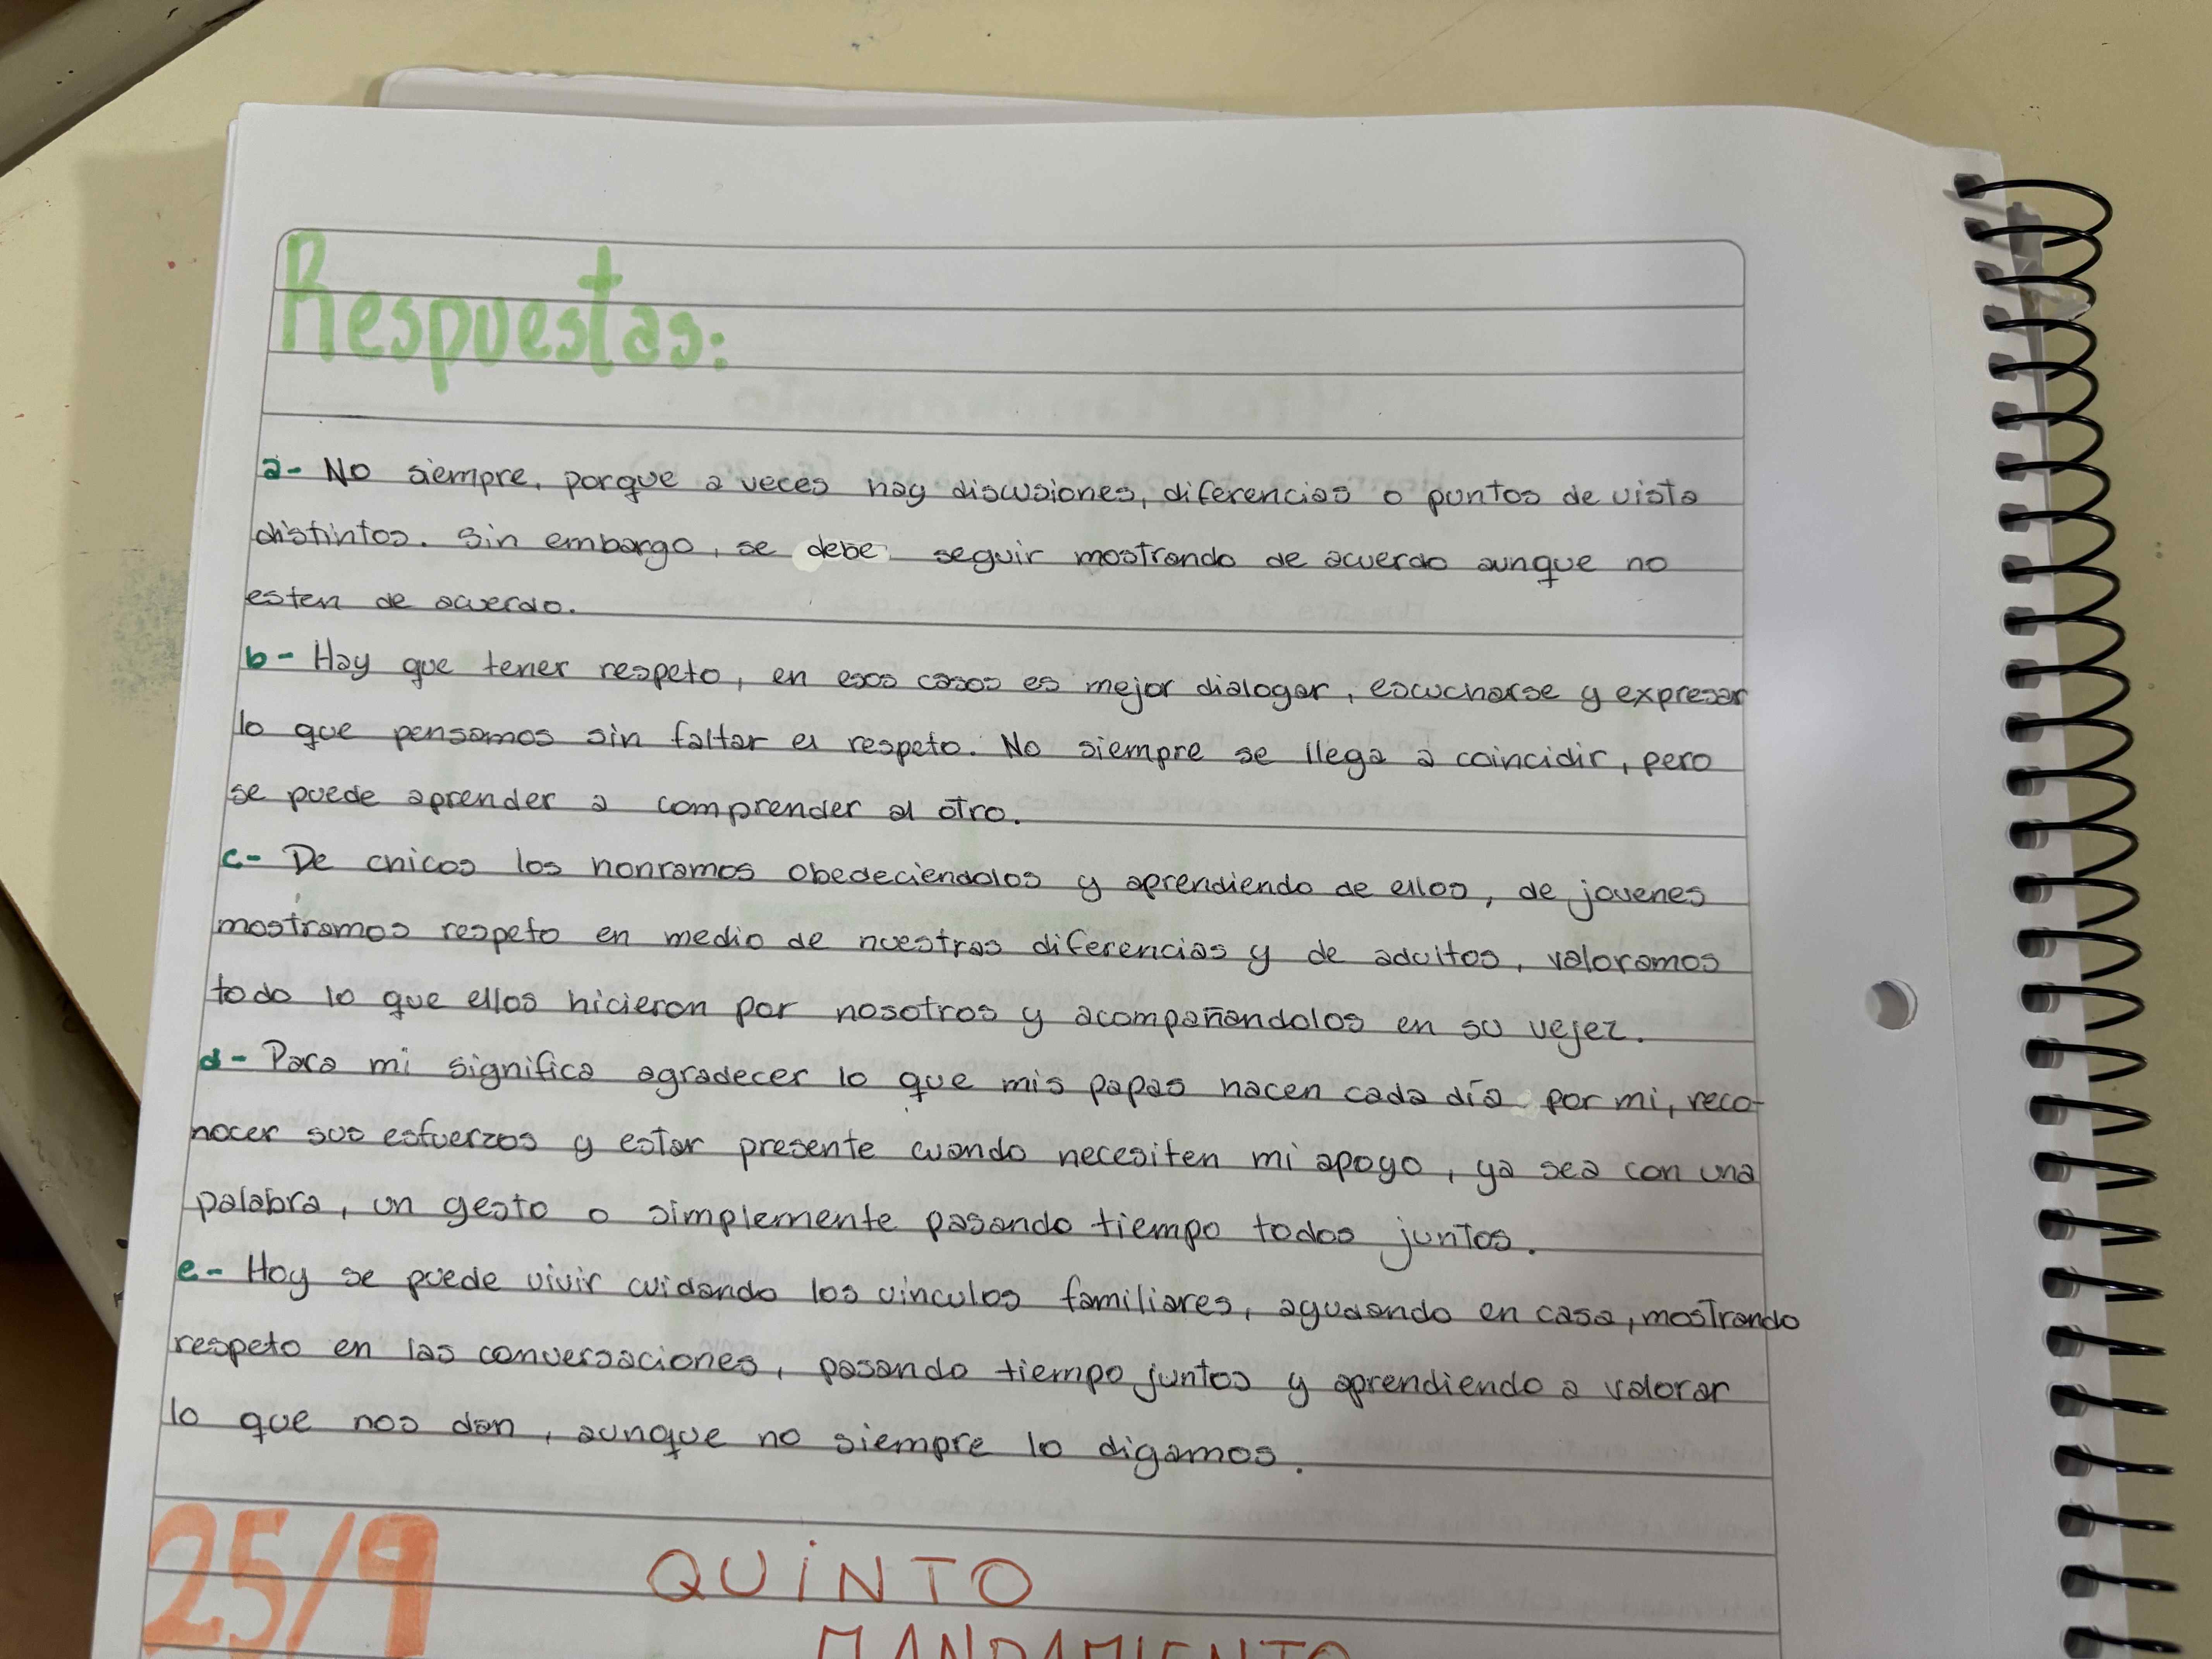 Respuestas:
a- No siempre, porque a veces hay discusiones, diferencias o puntos de vista
distintos. Sin embargo, se debe seguir mostrando de acuerdo aunque no
esten de acuerdo.
b- Hay que tener respeto, en esos casos es mejor dialogar, escucharse y expresar
lo que pensamos sin faltar el respeto. No siempre se llega a coincidir, pero
se puede aprender a comprender al otro.
c- De chicos los honramos obedeciendolos y aprendiendo de ellos, de jovenes
mostramos respeto en medio de nuestras diferencias y de adultos, valoramos
todo lo que ellos hicieron por nosotros y acompañandolos en su vejez.
d- Para mi significa agradecer lo que mis papas hacen cada día por mi, reco-
nocer sus esfuerzos y estar presente cuando necesiten mi apoyo, ya sea con una
palabra, un gesto o simplemente pasando tiempo todos juntos.
e- Hoy se puede vivir cuidando los vinculos familiares, ayudando en casa, mostrando
respeto en las conversaciones, pasando tiempo juntos y aprendiendo a valorar
lo que nos dan, aunque no siempre lo digamos.
25/9 QUINTO
MANDAMIENTO